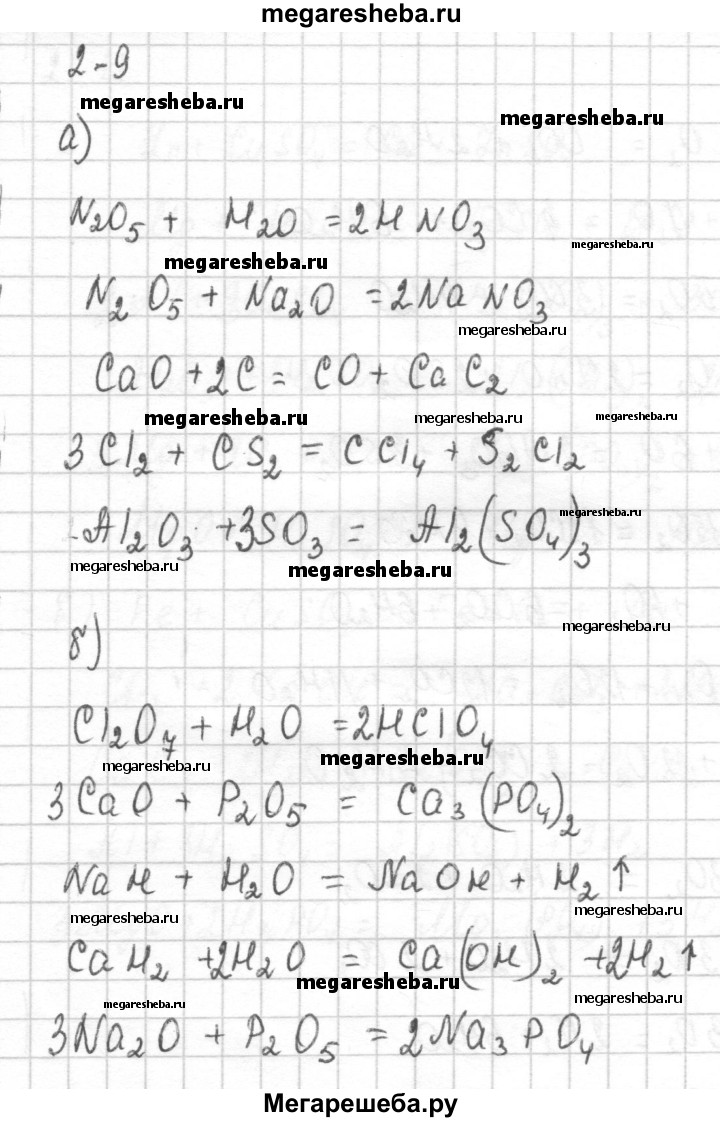 megaresheba.ru
2-9
megaresheba.ru
megaresheba.ru
а)
N₂O₅ + H₂O = 2HNO₃
megaresheba.ru
megaresheba.ru
N₂O₅ + Na₂O = 2NaNO₃
megaresheba.ru
CaO + 2C = CO + CaC₂
megaresheba.ru
megaresheba.ru
megaresheba.ru
3Cl₂ + CS₂ = CCl₄ + S₂Cl₂
megaresheba.ru
Al₂O₃ + 3SO₃ = Al₂(SO₄)₃
megaresheba.ru
megaresheba.ru
megaresheba.ru
б)
Cl₂O₇ + H₂O = 2HClO₄
megaresheba.ru
megaresheba.ru
3CaO + P₂O₅ = Ca₃(PO₄)₂
NaH + H₂O = NaOH + H₂↑
megaresheba.ru
megaresheba.ru
CaH₂ + 2H₂O = Ca(OH)₂ + 2H₂↑
megaresheba.ru
megaresheba.ru
megaresheba.ru
3Na₂O + P₂O₅ = 2Na₃PO₄
Мегарешеба.ру